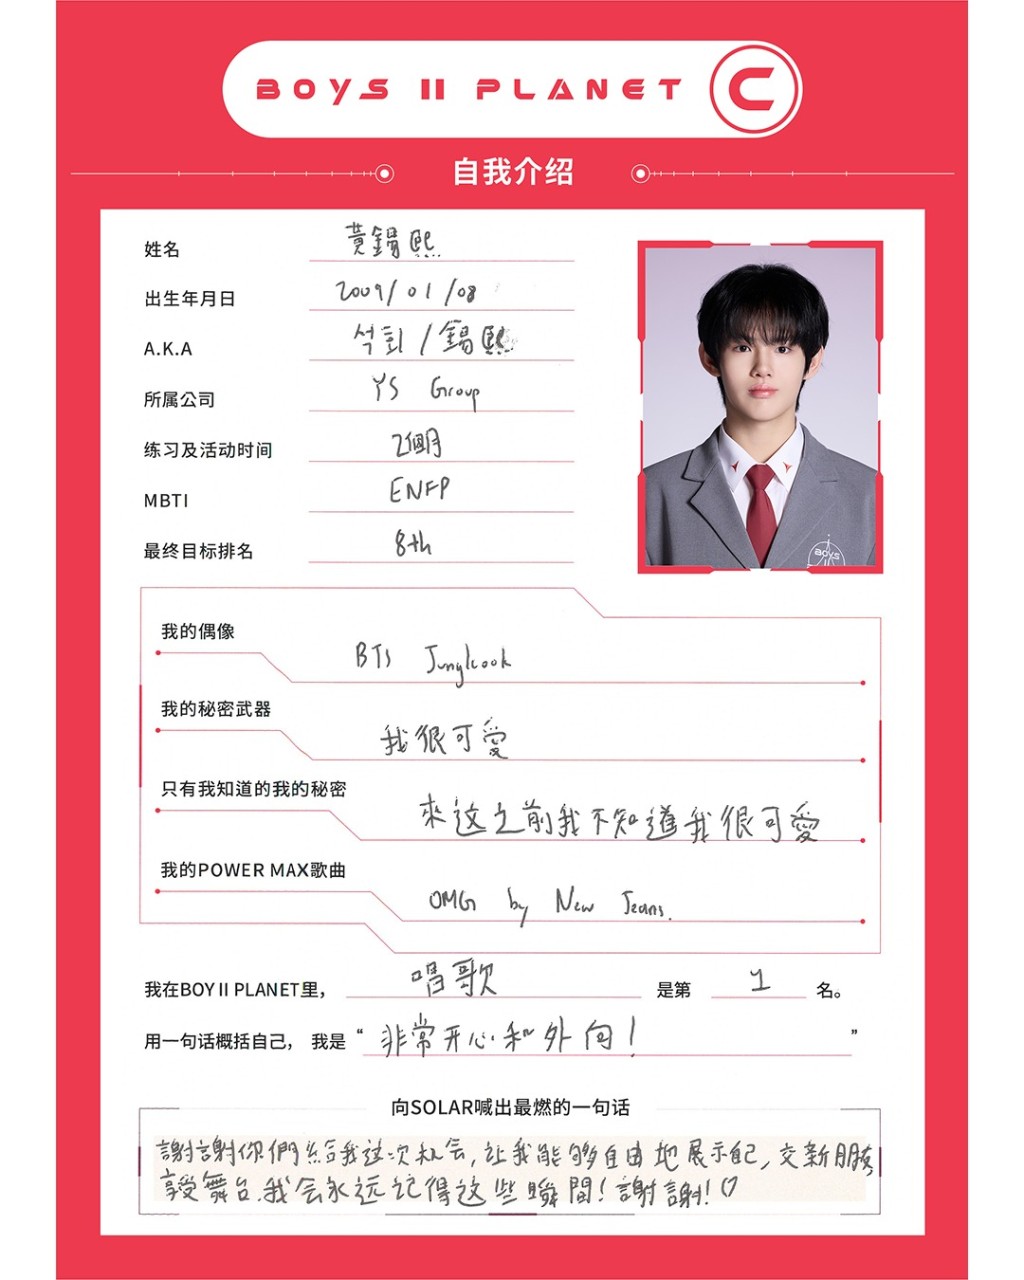 BOYS II PLANET C
自我介绍
姓名 黃錫熙
出生年月日 2009/01/08
A.K.A 석희 / 錫熙
所属公司 YS Group
练习及活动时间 2個月
MBTI ENFP
最终目标排名 8th
BOYS II
我的偶像
BTS Jungkook
我的秘密武器
我很可愛
只有我知道的我的秘密
來这之前我不知道我很可愛
我的POWER MAX歌曲
OMG by New Jeans.
我在BOY II PLANET里， 唱歌 是第 1 名。
用一句话概括自己， 我是 “ 非常开心和外向！ ”
向SOLAR喊出最燃的一句话
謝謝你們給我这次机会, 让我能够自由地展示自己, 交新朋友
享受舞台. 我会永远记得这些瞬間! 謝謝! ♡